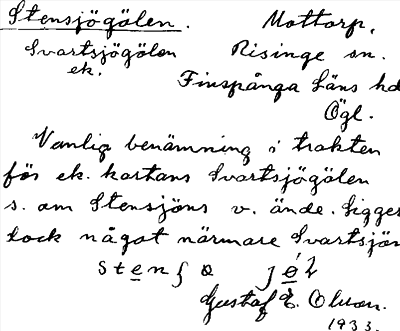 Stensjögölen. Mottorp,
Svartsjögölen Risinge sn.
ek. Finspånga läns hd
Ögl.
Vanlig benämning i trakten
för ek. kartans Svartsjögölen
s. om Stensjöns v. ände. Ligger
dock något närmare Svartsjön
Gustaf E. Olsson.
1933.